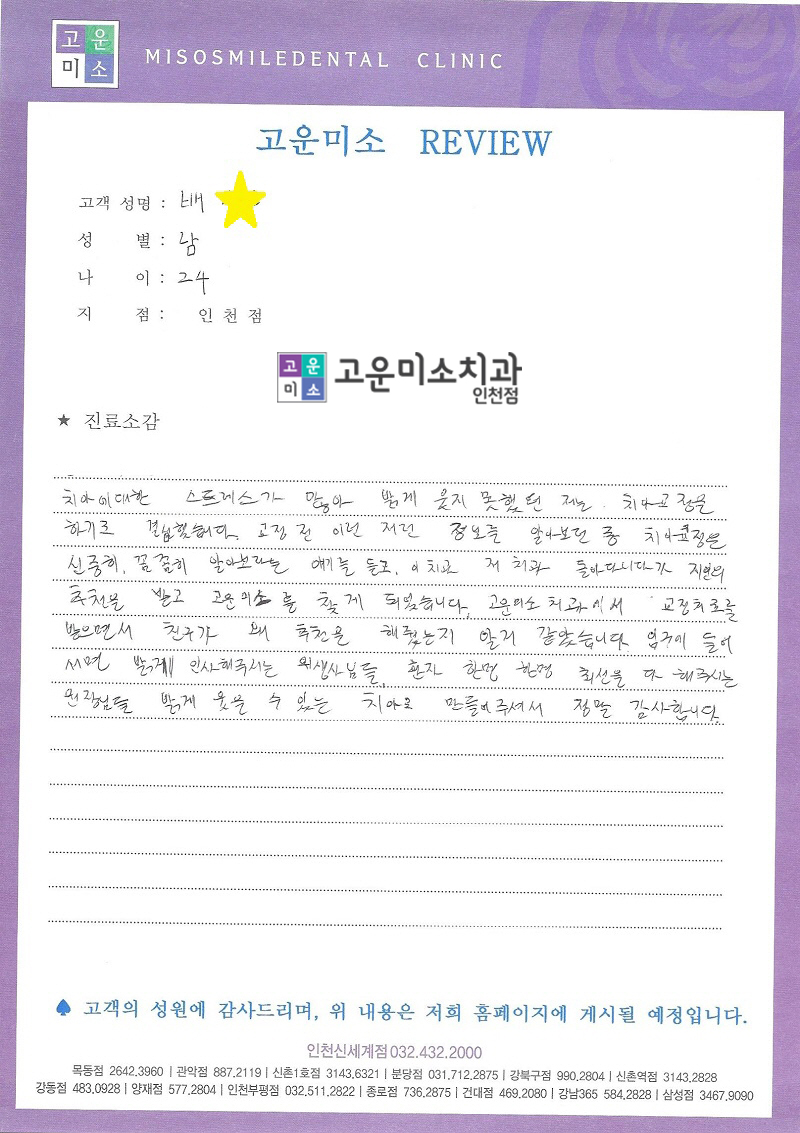 고운
미소
MISOSMILEDENTAL CLINIC
고운미소 REVIEW
고객 성명 : 배
성 별 : 남
나 이 : 24
지 점 : 인천점
고운
미소
고운미소치과
인천점
★ 진료소감
치아에대한 스트레스가 많아 밝게 웃지 못했던 저는 치아교정을
하기로 결심했습니다. 교정 전 이런 저런 정보를 알아보던 중 치아교정은
신중히, 꼼꼼히 알아보라는 얘기를 듣고, 이치과 저 치과 돌아다니다가 지인의
추천을 받고 고운미소를 찾게 되었습니다. 고운미소 치과에서 교정치료를
받으면서 친구가 왜 추천을 해줬는지 알거 같았습니다. 입구에 들어
서면 밝게 인사해주시는 위생사님들, 환자 한명 한명 최선을 다 해주시는
원장님들 밝게 웃을 수 있는 치아로 만들어주셔서 정말 감사합니다.
♠ 고객의 성원에 감사드리며, 위 내용은 저희 홈페이지에 게시될 예정입니다.
인천신세계점 032.432.2000
목동점 2642.3960 | 관악점 887.2119 | 신촌1호점 3143.6321 | 분당점 031.712.2875 | 강북구점 990.2804 | 신촌역점 3143.2828
강동점 483.0928 | 양재점 577.2804 | 인천부평점 032.511.2822 | 종로점 736.2875 | 건대점 469.2080 | 강남365 584.2828 | 삼성점 3467.9090